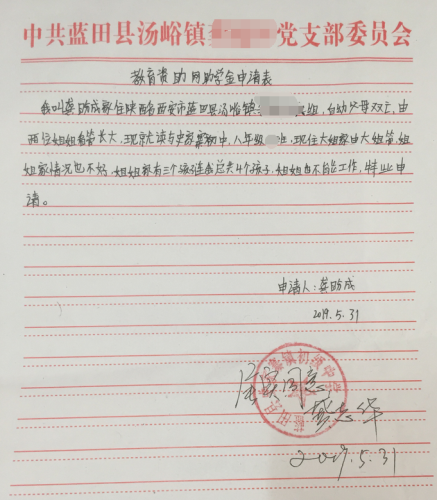 中共蓝田县汤峪镇 党支部委员会
教育资助网助学金申请表
我叫龚昉成家住陕西省西安市蓝田县汤峪镇 组,自幼父母双亡,由
两位姐姐看管长大,现就读与史家寨初中,八年级 班,现住大姐家由大姐管,姐
姐家情况也不好,姐姐家有三个孩连我总共4个孩子,姐姐也不能工作,特此申
请。
申请人:龚昉成
2019.5.31
情况同意
龚志华
2019.5.31